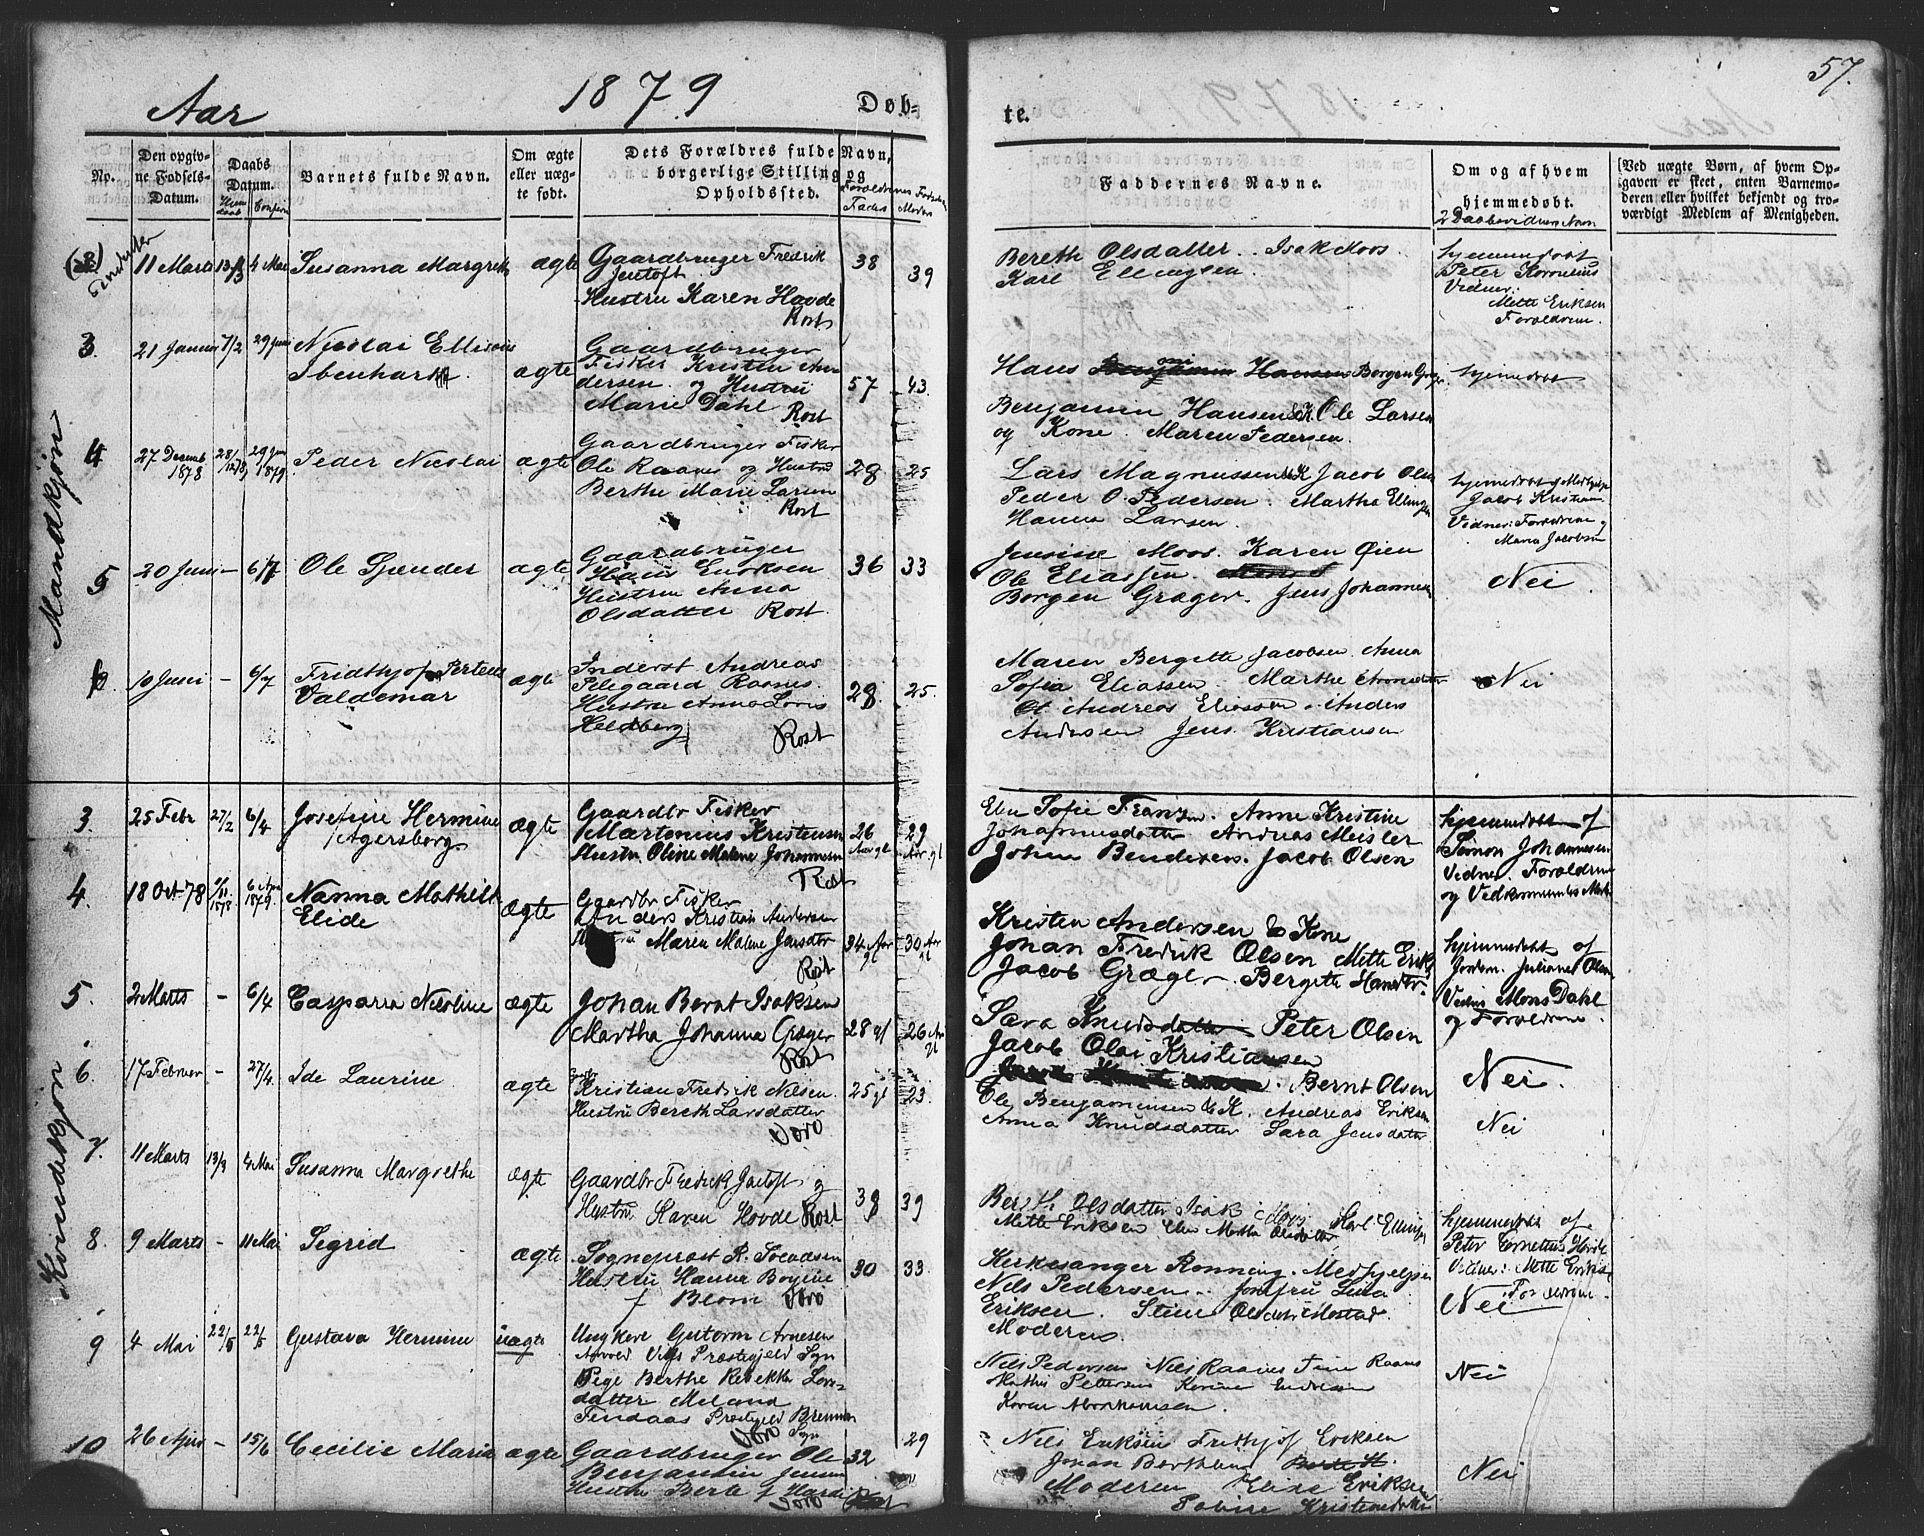 Aar 1879 Døb-
te.
57.
No.
Den opgiv-
ne Fødsels-
Datum.
Daabs
Datum.
Barnets fulde Navn.
Om ægte
eller uæg-
te født.
Dets Forældres fulde Navn,
borgerlige Stilling og
Opholdssted.
Faders
Moders
Faddernes Navne.
Om og af hvem
hjemmedøbt.
2 Daabsvidners Navn
(Ved uægte Børn, af hvem Op-
gaven er skeet, enten Barnemo-
deren eller hvilket bekjendt og tro-
værdigt Medlem af Menigheden.
Mandkjøn
11 Marts 13/3 4 Mai Susanna Margreth ægte
Gaardbruger Fredrik
Jentoft
Hustru Karen Hovde
Røst
38 39
Bereth Olsdatter. Isak Moos
Karl Ellingsen
hjemmedøbt
Peter Kornelius
Vidner:
Mette Eriksen
Forældrene.
3. 21 Januar 7/2 29 Juni Nicolai Ellisius
Ibenhart. ægte
Gaardbruger
Fisker Kristen An
dersen og Hustru
Marie Dahl Røst
57 43.
Hans Borgen Græger
Benjamin Hansen & K. Ole Larsen
og Kone. Maren Pedersen.
hjemedøbt
4 27 Decemb 1878 28/12 78 29 Juni 1879 Peder Nicolai ægte
Gaardbruger Fisker
Ole Raanes og Hustru
Berthe Marie Larsen
Røst
28 25
Lars Magnussen & K Jacob Olsen
Peder O. Pedersen. Martha Ellingsen
Hanna Larsen.
hjemedøbt af Medhjelper
Jacob Kristian
Vidner: Forældrene og
Maria Jacobsen
5 20 Juni - 6/7 Ole Gjænder ægte
Gaardbruger
Hans Eriksen
Hustru Anna
Olsdatter Røst.
36 33
Jensine Moos. Karen Øien
Ole Eliassen.
Borgen Græger. Jens Johannesen
Nei
6. 10 Juni - 6/7 Fridthjof Perteus
Valdemar ægte
Inderst Andreas
Pelegaard Raanes.
Hustru Anna Lovis
Heldberg Røst
28. 25.
Maren Bergette Jacobsen. Anna
Sofia Eliassen. Marthe Aronsdatter
Ot Andreas Eliassen. Anders
Andersen Jens Kristiansen
Nei
Kvindekjøn
3. 25 Febr 27/2 6/4 Josefine Hermine
Agersborg ægte
Gaardbr Fisker
Martonius Kristensen
Hustru Oline Malene Johannesen
Røst
26 Aar gl 29 Aar gl
Elen Sofie Franzen. Anne Kristine
Johannesdatter. Andreas Meisler
Johan Bendixen. Jacob Olsen
hjemmedøbt af
Simon Johannesen
Vidner. Forældrene
og Vedkommendes Moder
4. 18 Oct 78 6 Apr 1879. Nanna Mathilde
Elide ægte
Gaardbr Fisker
Anders Kristian Andersen
Hustru Maren Malene Jansdatr
Røst
34 Aar gl 30 Aar gl
Kristen Andersen & Kone
Johan Fredrik Olsen Mette Erik.
Jacob Græger. Bergitte Hansdtr.
hjemmedøbt af
Jordm. Juliane Olsen
Vidne Mons Dahl
og Forældrene.
5. 2 Marts - 6/4 Casparra Nicoline ægte
Johan Bernt Isaksen
Martha Johanna Græger
Røst
28 gl 26 Aar gl
Sara Knudsdatter Peter Olsen
Jacob Olai Kristiansen
Bernt Olsen
Nei.
6. 17 Februar - 27/4 Ide Laurine ægte
Kristian Fredrik Nilsen.
Hustru Bereth Larsdatter
Værø
25 gl 23.
Ole Benjaminsen & K. Andreas Eriksen
Anna Knudsdatter Sara Jensdatter
Nei
7. 11 Marts 13/3 4 Mai Susanna Margrethe ægte
Gaardbr Fredrik Jentoft og
Hustru Karen Hovde Røst
38 39
Olsdatter Isak Moos Karl Elling
Mette Eriksen Martha Olsdatter
hjemmedøbt af
Peter Cornelius Hovde
Vidner: Mette Eriks
Forældrene
8. 9 Marts - 11 Mai Sigrid ægte
Sogneprest R. Svendsen
Hustru Hanna Bojine
f Blom Værø
30 33.
Kirkesanger Rønning. Medhjelper
Nils Pedersen. Jomfru Lina
Eriksen. Stine Olsdatr Mostad
Moderen.
Nei
9 4 Mai 22/5 22/5 Gustava Hermine uægte
Ungkarl Gutorm Arnesen
Aavold Viks Prestegjeld Sogn
Pige Berthe Rebekka Lars-
datter Meland
Prestgjeld Brennen
Værø Sogn
Nils Pedersen Nils Raanes Tine Raanes
Pettersen Karine Endresen
Karen Abrahamsen.
Nei
10 26 April - 15/6 Cecilie Maria ægte
Gaardbruger Ole
Benjamin Jensen
Hustru Berte f. Hardi
Værø
32 29
Nils Eriksen Frithjof Eriksen
Johan
Moderen Elise Eriksen
Kristensdatter
Nei